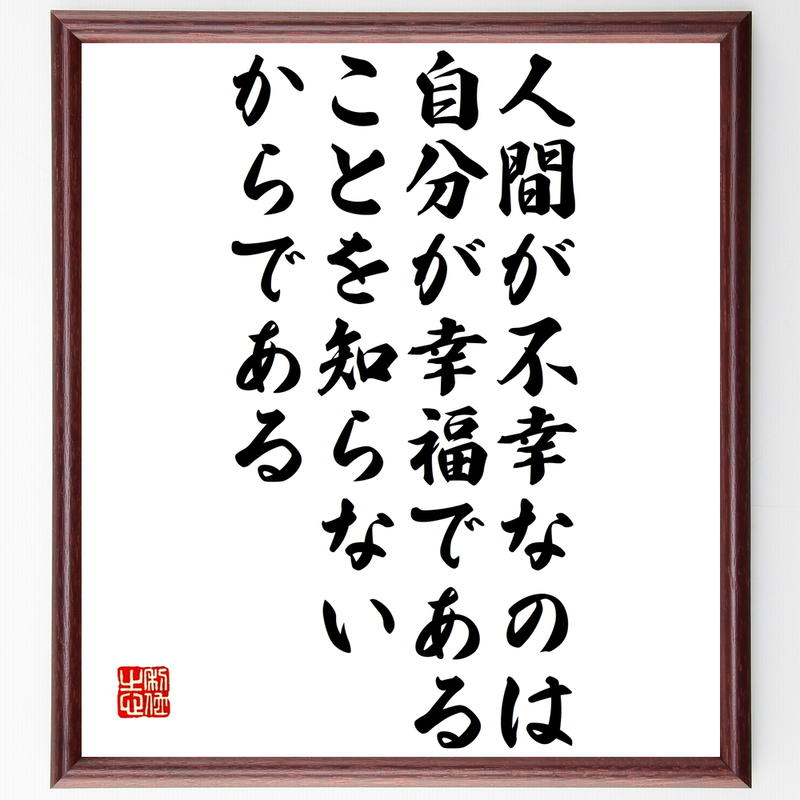 人間が不幸なのは
自分が幸福である
ことを知らない
からである